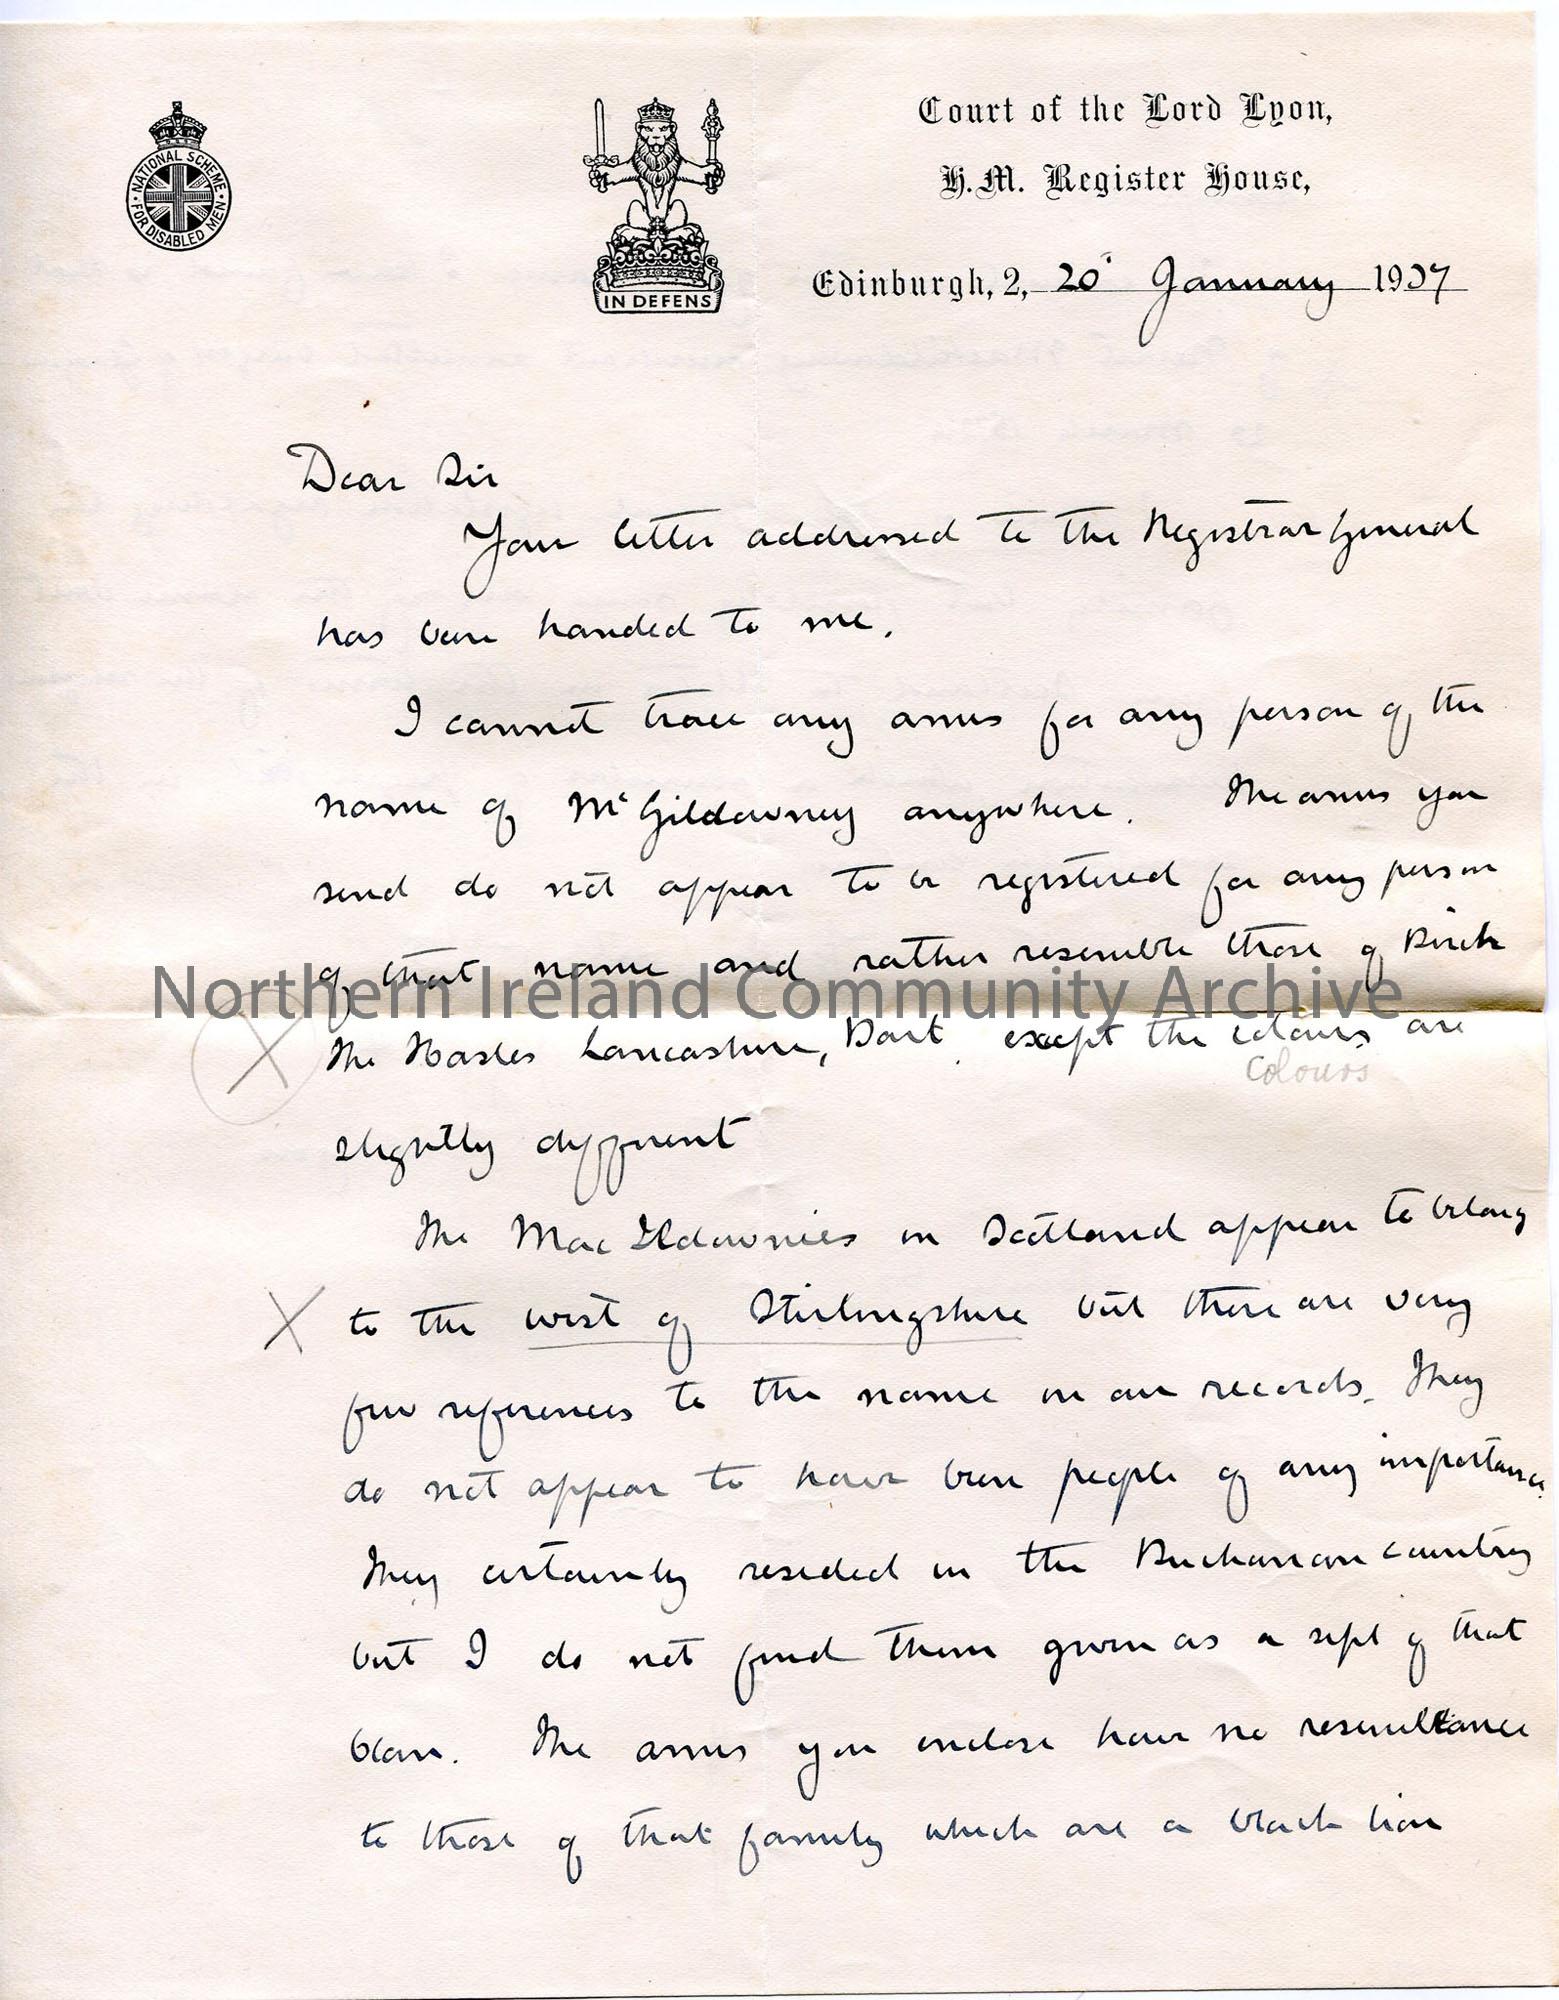 NATIONAL SCHEME
FOR DISABLED MEN
IN DEFENS
Court of the Lord Lyon,
H.M. Register House,
Edinburgh, 2, 20 January 1937
Dear Sir
Your letter addressed to the Registrar General
has been handed to me.
I cannot trace any arms for any person of the
name of McGildowney anywhere. The arms you
send do not appear to be registered for any person
of that name and rather resemble those of Birch
Northern Ireland Community Archive
The Lancashire, Bart. except the colours are
colours
slightly different
The MacIldownies in Scotland appear to belong
to the west of Stirlingshire but there are very
few references to the name in our records. They
do not appear to have been people of any importance.
They certainly resided in the Buchanan country
but I do not find them given as a sept of that
Clan. The arms you enclose have no resemblance
to those of that family which are a black lion